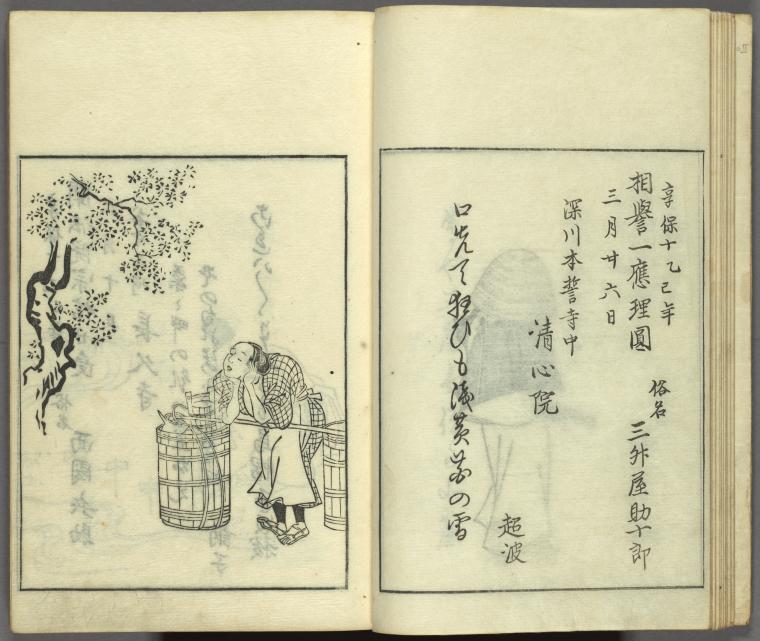 享保十乙巳年
相譽一應理圓
三月廿六日
俗名 三舛屋助十郎
深川本誓寺中
清心院
口先て狂ひも浅黄の雪
超波